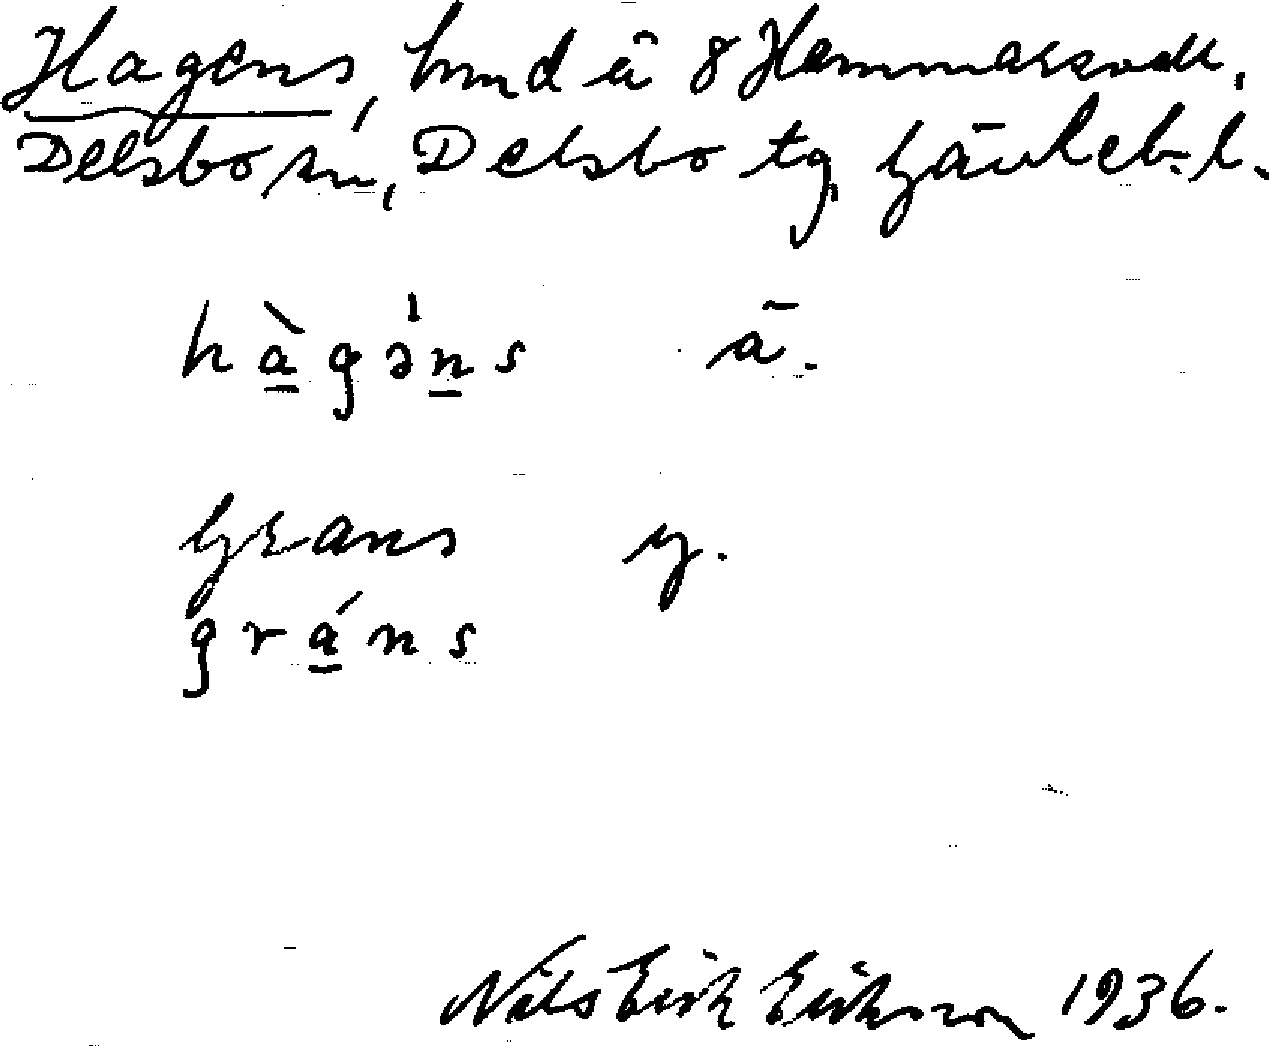 Hagens, hmd å 8 Hammarsvall,
Delsbo sn, Delsbo tg, Gävleb. l.
hàgəns ā.
Grans y.
gráns
Nils Erik Eriksson 1936.